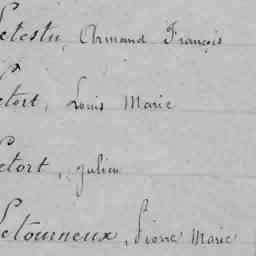 Letestu, Armand François
Letort, Louis Marie
Letort, Julien
Letourneux, Pierre Marie